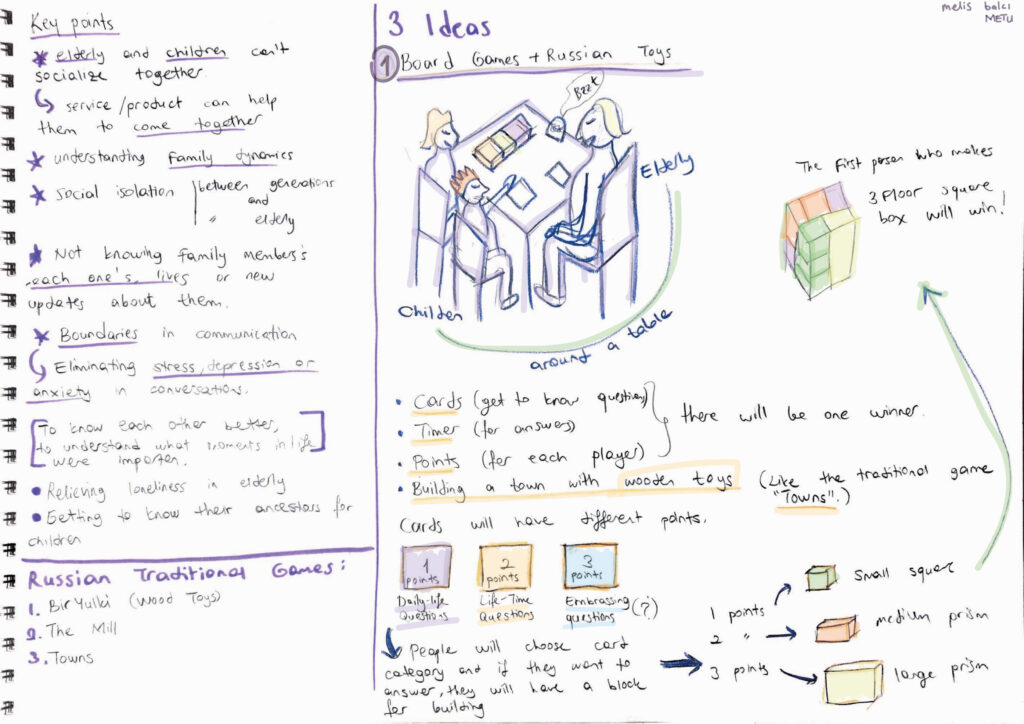 Key points
elderly and children can't
socialize together.
service/product can help
them to come together
understanding family dynamics
Social isolation between generations
and
" elderly
Not knowing family members's
each one's lives or new
updates about them.
Boundaries in communication
Eliminating stress, depression or
anxiety in conversations.
To know each other better,
to understand what moments in life
were importen.
Relieving loneliness in elderly
Getting to know their ancestors for
children
Russian Traditional Games:
1. BirYulki (Wood Toys)
2. The Mill
3. Towns
melis balcı
METU
3 Ideas
1 Board Games + Russian Toys
Bzzt
Elderly
Childen
around a table
The first person who makes
3 Floor square
box will win!
Cards (get to know questions)
Timer (for answers)
Points (for each player)
there will be one winner.
Building a town with wooden toys
(Like the traditional game
"Towns".)
Cards will have different points.
1 points
2 points
3 points
Daily-life
Questions
Life-Time
Questions
Embrassing
questions (?)
People will choose card
category and if they want to
answer, they will have a block
for building
1 points
2 "
3 points
Small square
medium prism
large prism